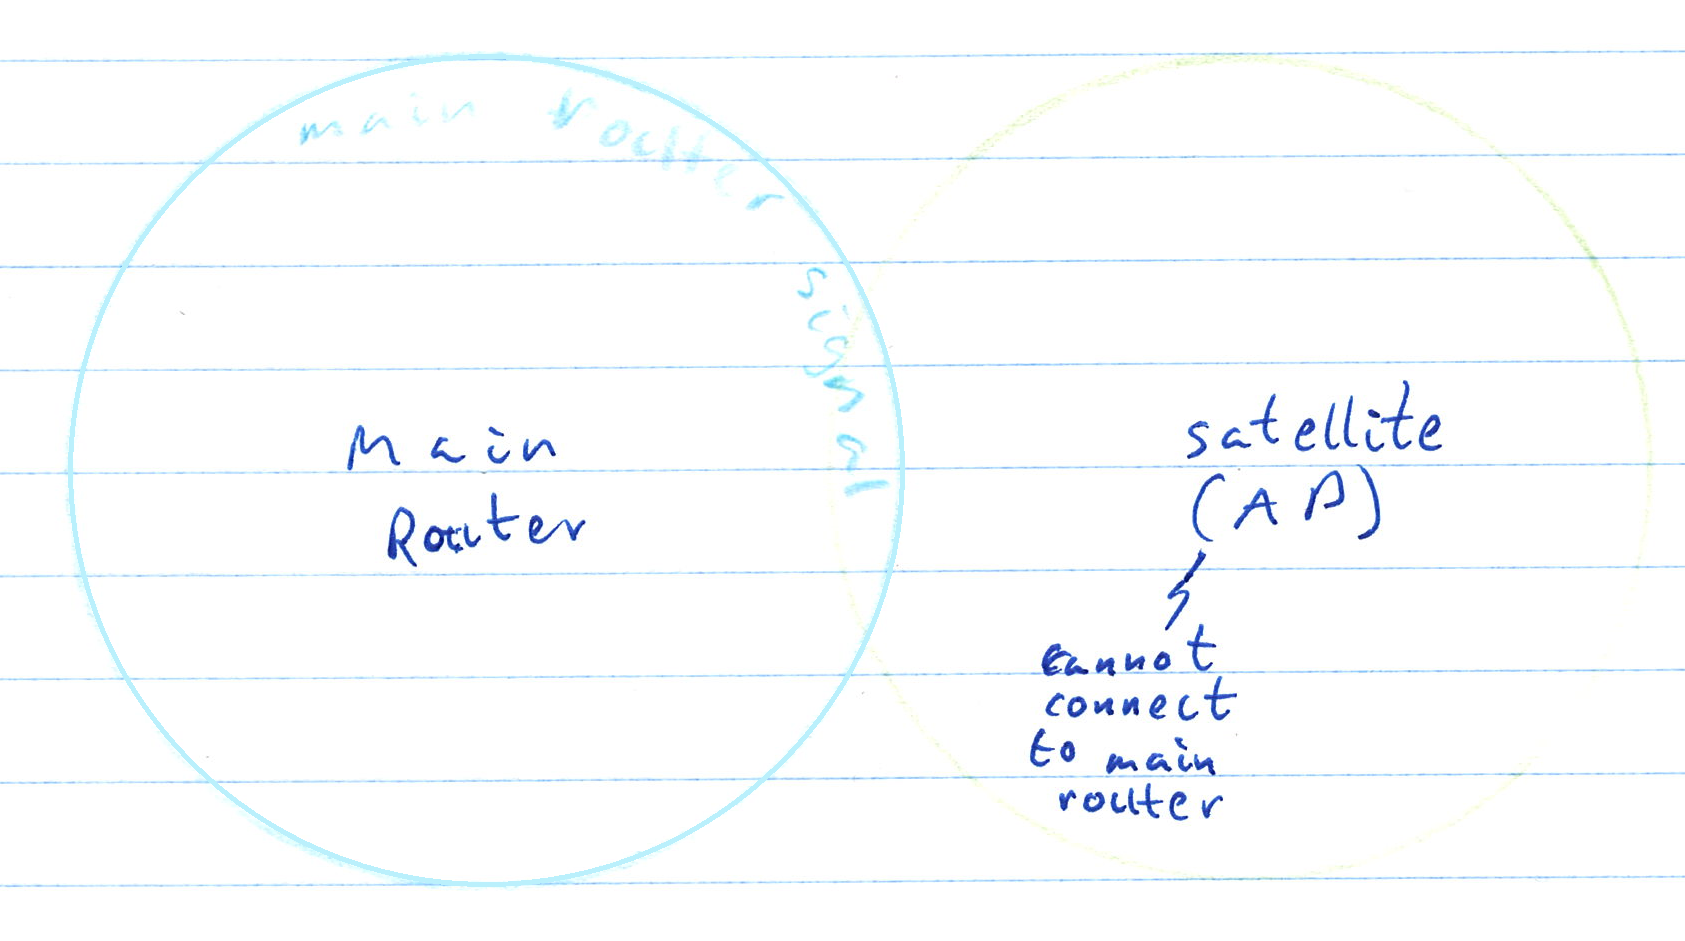 main router signal
Main
Router
satellite
(AP)
cannot
connect
to main
router